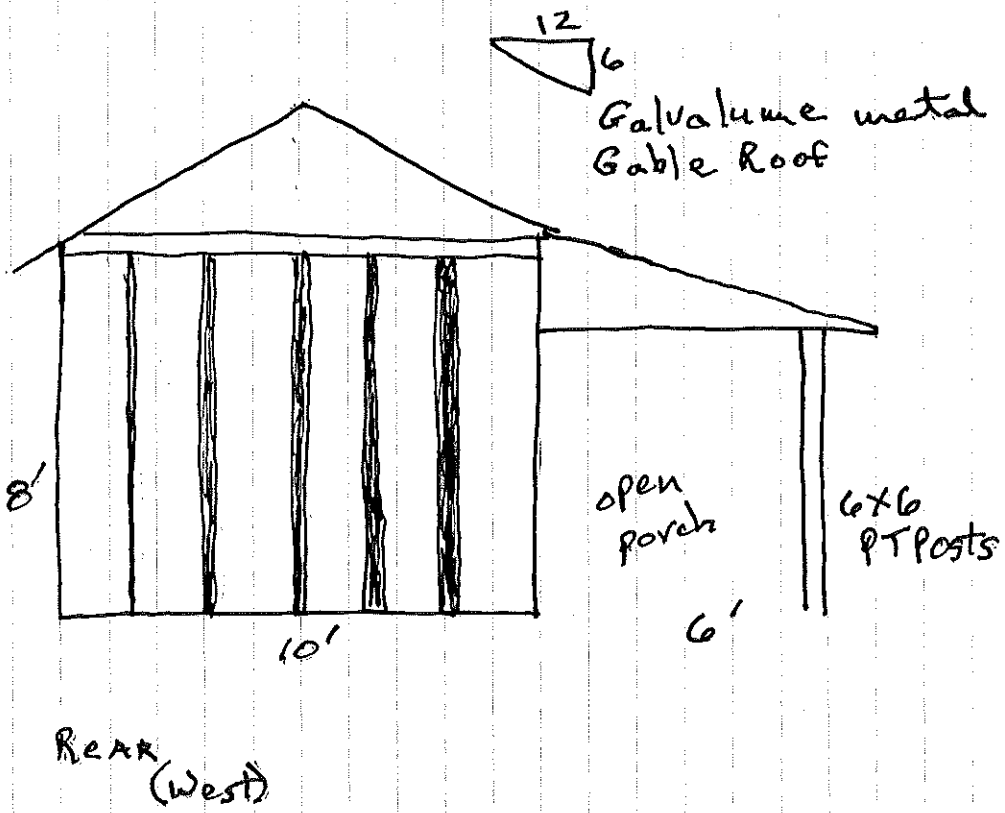 12
6
Galvalume metal
Gable Roof
8'
open
porch
6x6
PT Posts
10'
6'
Rear
(West)